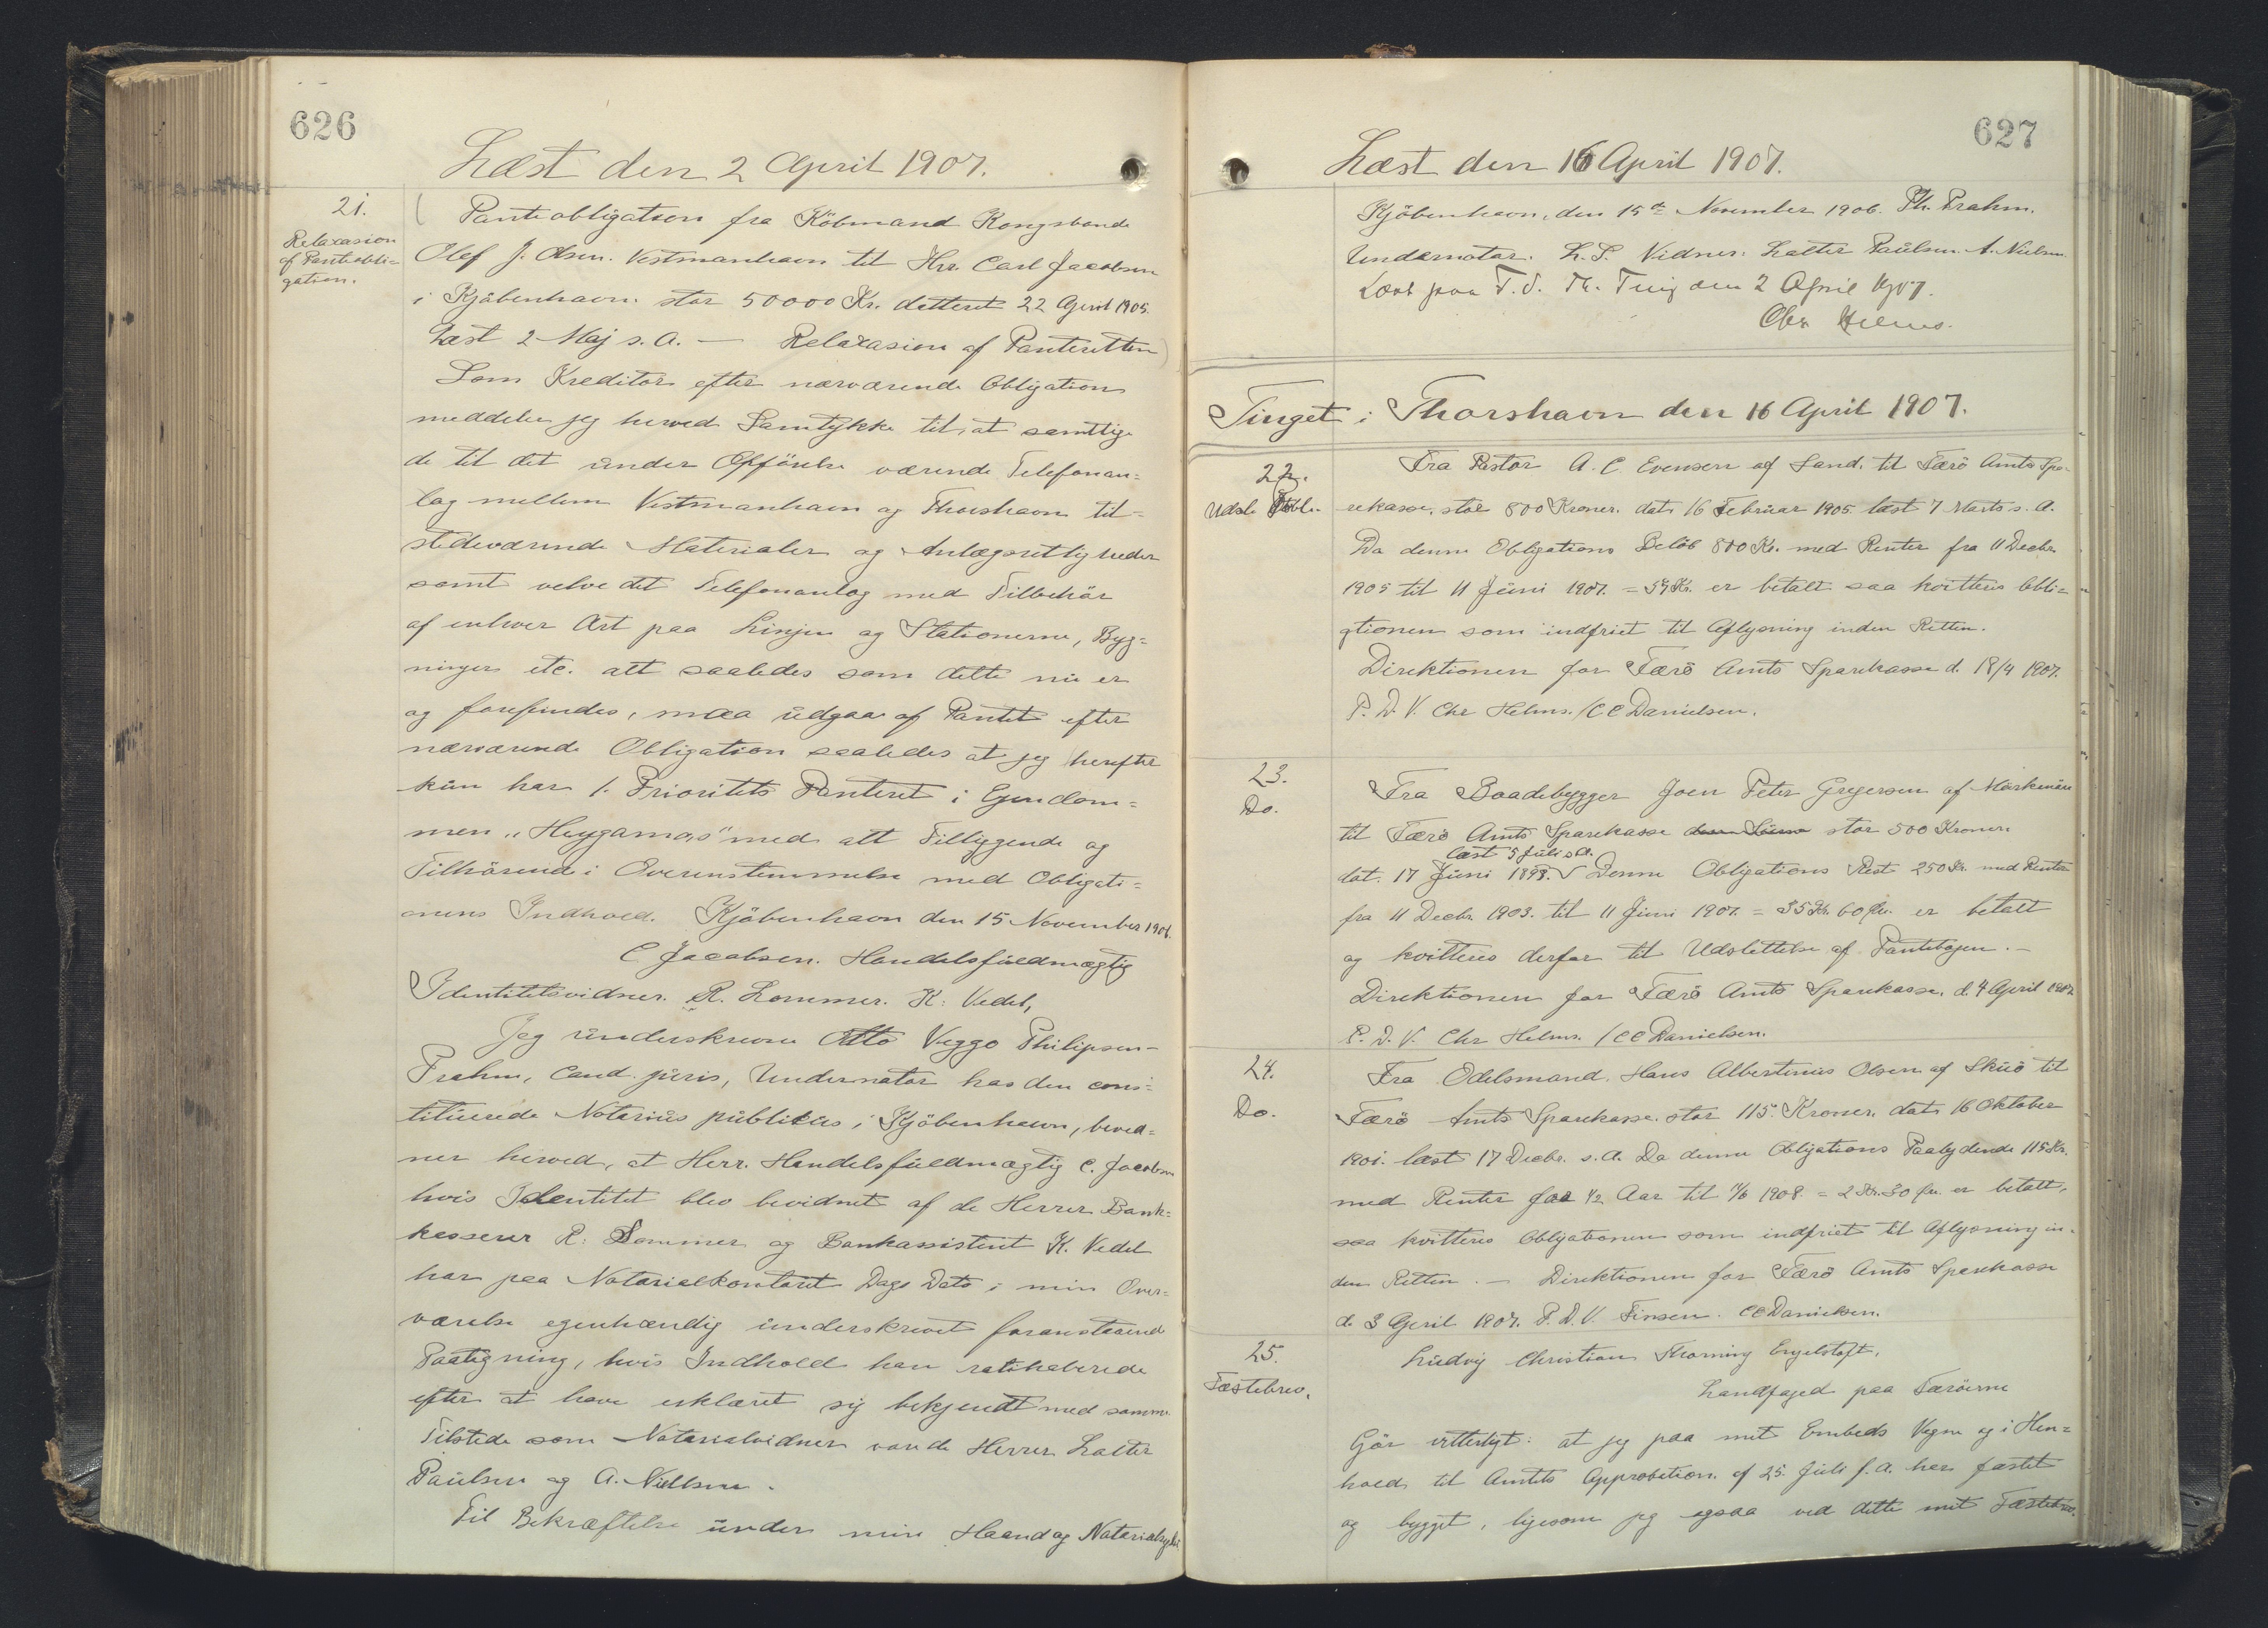 626
Læst den 2 April 1907.
21.
Relaxasion
af Pantobli=
gation.
(Pantobligation fra Köbmand Kongsbonde
Olef J. Olsen. Vestmanhavn til Hrr. Carl Jacobsen
i Kjöbenhavn. stor 50000 Kr. datteret 22 April 1905.
Læst 2 Maj s. A. — Relaxasion af Panteretten)
Som Kreditor efter nærværende Obligation
meddeler jeg herved Samtykke til, at samtlige
de til det under Opförelse værende Telefonan=
læg mellem Vestmanhavn og Thorshavn til-
stedeværende Materialer og Anlægsrettigheder
samt selve det Telefonanlæg med Tilbehör
af enhver Art paa Linjen og Stationerne, Byg=
ninger etc. alt saaledes som dette nu er
og forefindes, maa udgaa af Pantet efter
nærværende Obligation saaledes at jeg herefter
kun har 1. Prioritets Panteret i Ejendom=
men "Heygamas" med alt Tilliggende og
Tilhörende i Overenstemmelse med Obligati=
onens Indhold. Kjöbenhavn den 15 November 1906.
C Jacobsen. Handelsfuldmægtig
Identitetsvidner. R. Lommer. K. Vedel,
Jeg underskrevne Otto Veggo Philipsen-
Prahm, Cand. juris, Undernotar hos den cons=
tituerede Notarius publicus i Kjöbenhavn, bevid=
ner herved, at Herr. Handelsfuldmægtig C. Jacobsen
hvis Identitet blev bevidnet af de Herrer Bank=
kasserer R. Lommer og Bankassistent K. Vedel
har paa Notarialkontoret Dags Dato i min Over=
værelse egenhændig underskrevet foranstaaende
Paategning, hvis Indhold han ratihaberede
efter at have erklæret sig bekjendt med samme.
Tilstede som Notarialvidner var de Herrer Lalter
Paulsen og A. Niellsen.
Til Bekræftelse under min Haand og Notarialsegl.
627
Læst den 16 April 1907.
Kjöbenhavn, den 15de November 1906. Ph. Prahm.
Undernotar. L. S. Vidner. Lalter Paulsen A. Nielsen.
Læst paa T. S. Th. Ting den 2 April 1907.
Chr Helms.
Tinget i Thorshavn den 16 April 1907.
22.
Udsl. Obl.
Fra Pastor A. C. Evensen af Sand. til Færö Amts Spa-
rekasse, stor 800 Kroner. dat. 16 Februar 1905. læst 7 Marts s. A.
Da denne Obligations Belöb 800 Kr. med Renter fra 11 Decbr.
1905 til 11 Juni 1907. = 54 Kr. er betalt saa kvitteres Obli=
gtionen som indfriet til Aflysning inden Retten.
Direktionen for Færö Amts Sparekasse d. 18/4 1907.
P. D. V. Chr Helms. / C C Danielsen.
23.
Do.
Fra Baadebygger Joen Peter Gregersen af
til Færö Amts Sparekasse stor 500 Kroner.
læst 5 Juli s A.
dat. 17 Juni 1898. √ Denne Obligations Rest 250 Kr. med Renter
fra 11 Decbr. 1903. til 11 Juni 1907. = 35 Kr. 60 Øre. er betalt
og kvitteres derfor til Udslettelse af Pantebogen. —
Direktionen for Færö Amts Sparekasse. d. 4 April 1907
P. D. V. Chr Helms. / C C Danielsen.
24.
Do.
Fra Odelsmand. Hans Albertinus Olsen af Skuö til
Færö Amts Sparekasse. stor 115 Kroner. dat. 16 Oktober
1901. læst 17 Decbr. s. A. Da denne Obligations Paalydende 115 Kr.
med Renter for 1/2 Aar til 11/6 1908. = 2 Kr. 30 Øre er betalt,
saa kvitteres Obligationen som indfriet til Aflysning in-
den Retten. — Direktionen for Færö Amts Sparekasse
d. 3 April 1907. P. D. V. Finsen. C C Danielsen.
25.
Fæstebrev.
Ludvig Christian Thorning Engelstoft,
Landfoged paa Færöerne
Gör vitterligt: at jeg paa mit Embeds Vegne og i Hen=
hold til Amtets Approbation af 25. Juli f. A. har fæstet
og bygget, ligesom jeg ogsaa ved dette mit Fæstebrev.